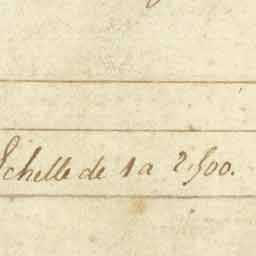 Echelle de 1 a 2500.